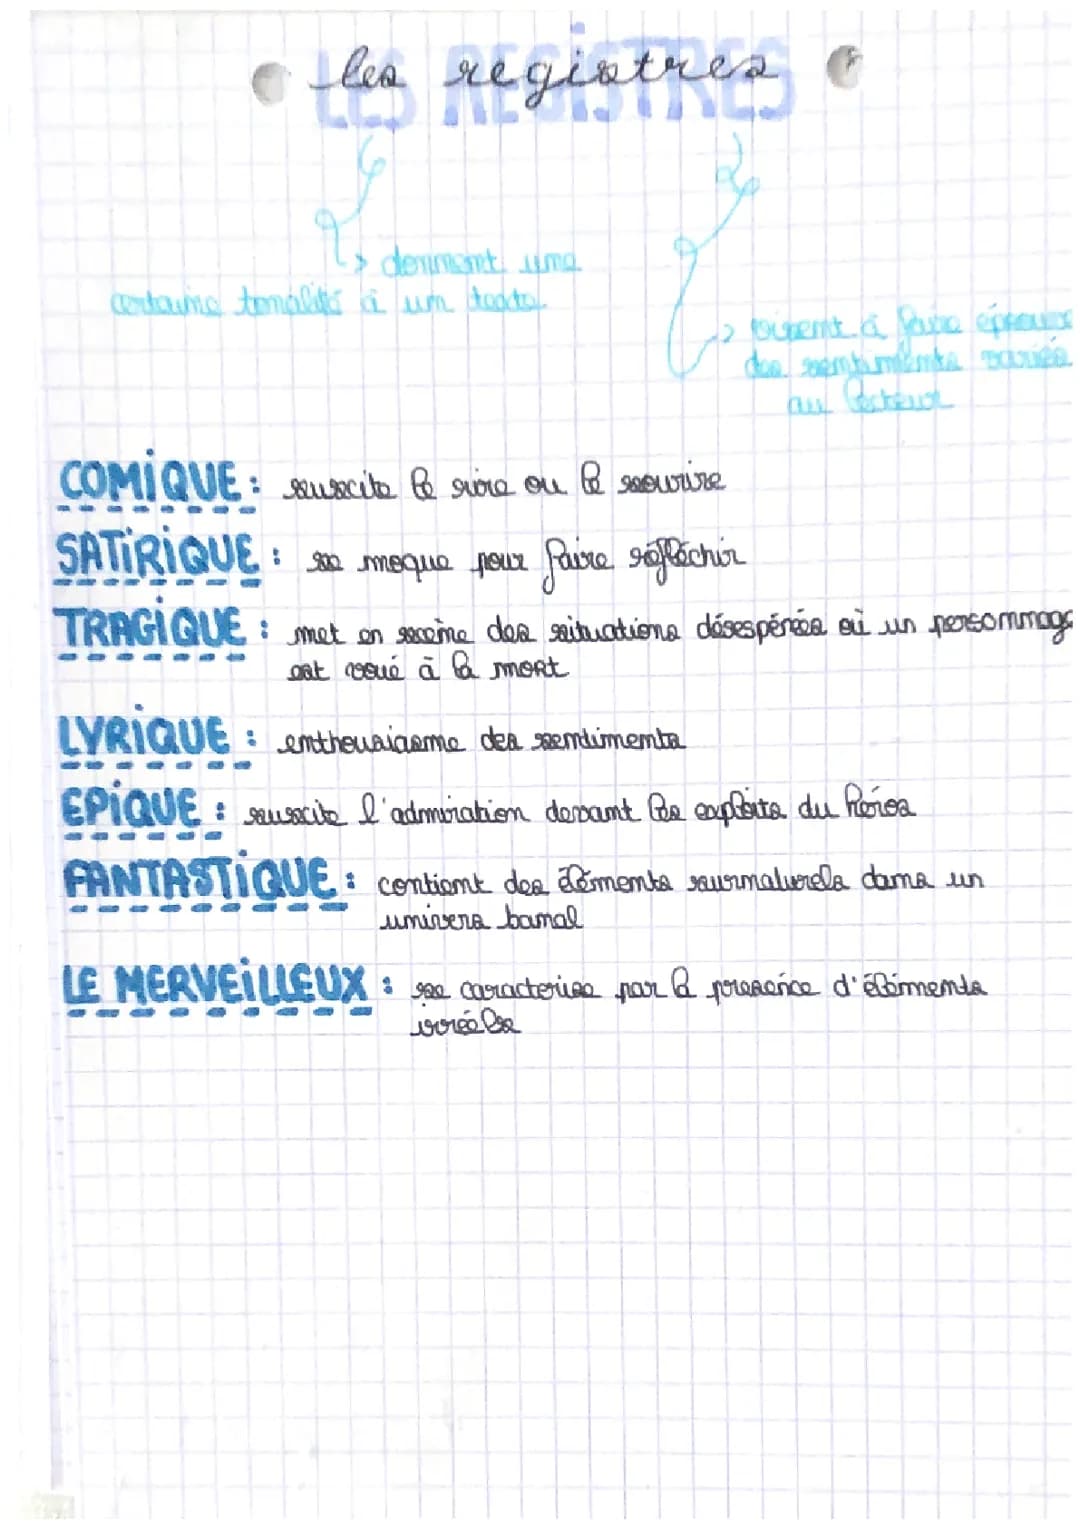 LES REGISTRES
les registres
donnent une
certaine tonalité à un texte.
visent à faire éprouver
des sentiments variés
au lecteur
COMIQUE : suscite le rire ou le sourire
SATIRIQUE : se moque pour faire réfléchir
TRAGIQUE : met en scène des situations désespérées où un personnage
est voué à la mort
LYRIQUE : enthousiasme des sentiments
EPIQUE : suscite l'admiration devant les exploits du héros
FANTASTIQUE : contient des éléments surnaturels dans un
univers banal
LE MERVEILLEUX : se caractérise par la présence d'éléments
irréels